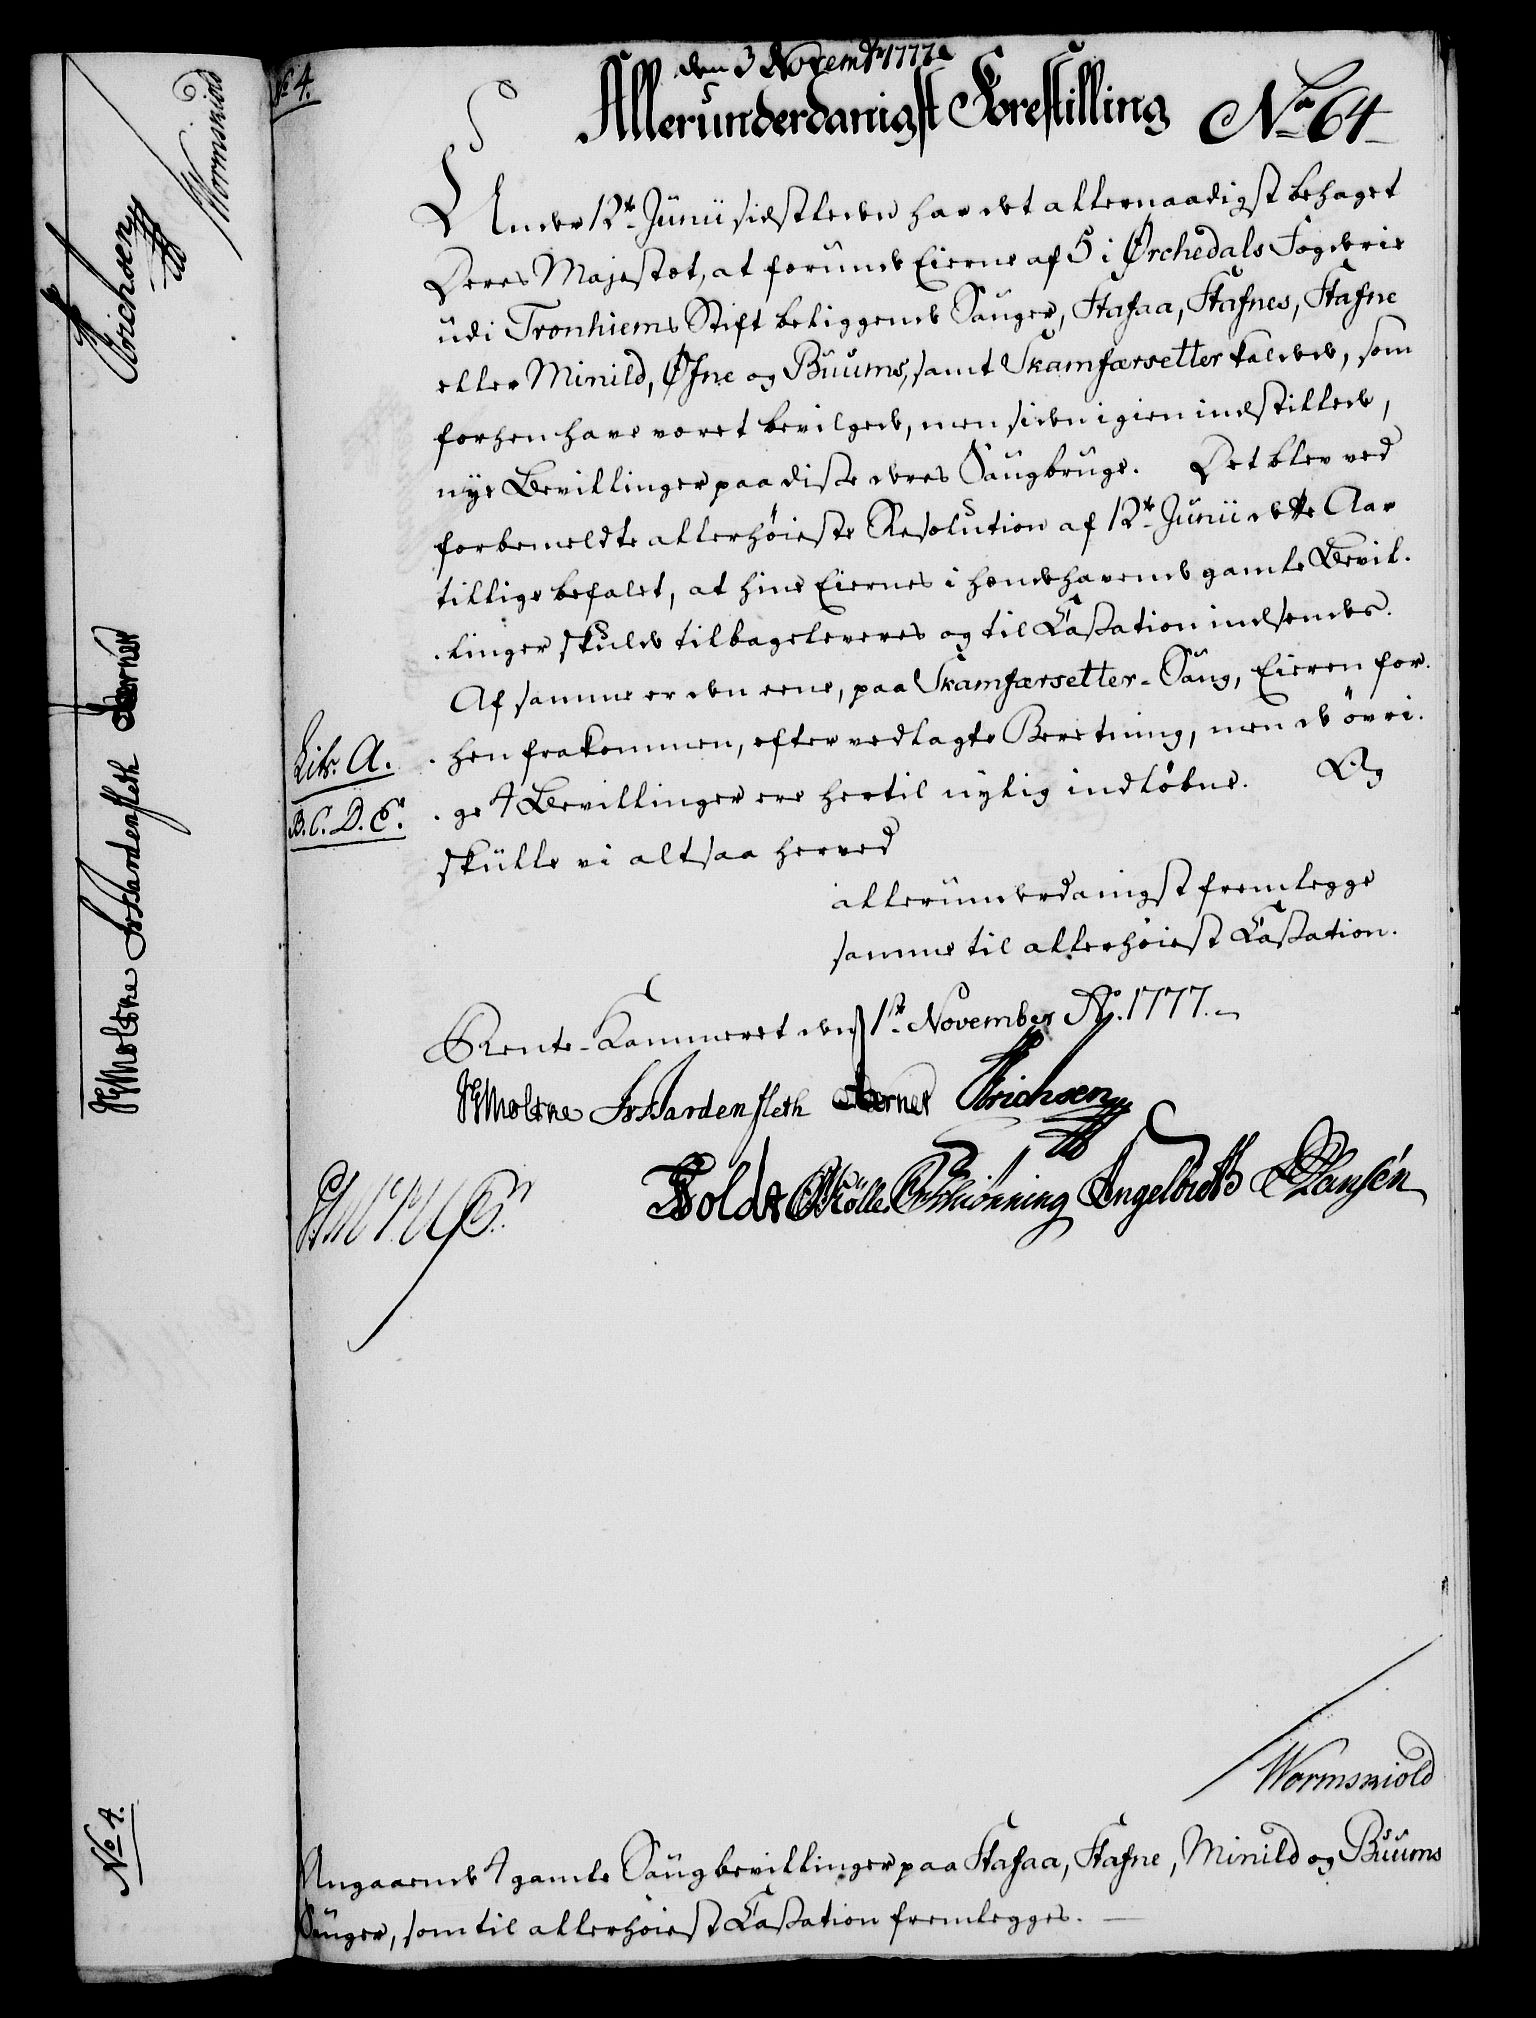 No 4.
den 3 Novemb 1777.
Allerunderdanigst Forestilling No 64
Under 12te Junii sidstleden har det allernaadigst behaget
Deres Majestæt, at forunde Eierne af 5 i Ørchedals Fogderie
udi Tronhiems Stift beliggende Sauger, Stafaa, Stafnes, Stafne
eller Minild, Øfne og Buums, samt Skamfærsetter kaldede, som
forhen have været bevilgede, men siden igien indstillede,
nye Bevillinger paa disse deres Saugbruge. Det blev ved
forbemeldte allerhöieste Resolution af 12te Junii dette Aar
tillige befalet, at hine Eiernes i hændehavende gamle Bevil-
linger skulde tilbageleveres og til Cassation indsendes.
Af samme er den eene, paa Skamfærsetter-Saug, Eieren for-
Litr. A.
hen frakommen, efter vedlagte Beretning, men de övri-
B. C. D. E.
ge 4 Bevillinger ere hertil nylig indløbne. Og
skulle vi altsaa herved
allerunderdanigst fremlegge
samme til allerhöiest Cassation.
Rente-Kammeret den 1ste November Ao. 1777.
HMoltke Hardenfleth Berner Erichsen
Holdt Müller Schiönning Engelbreth Hansen
Wormskiold
Angaaende 4 gamle Saugbevillinger paa Stafaa, Stafne, Minild og Buums
Sauger, som til allerhöiest Cassation fremlegges.
Wormskiold
Erichsen
HMoltke Hardenfleth Berner
No 4.